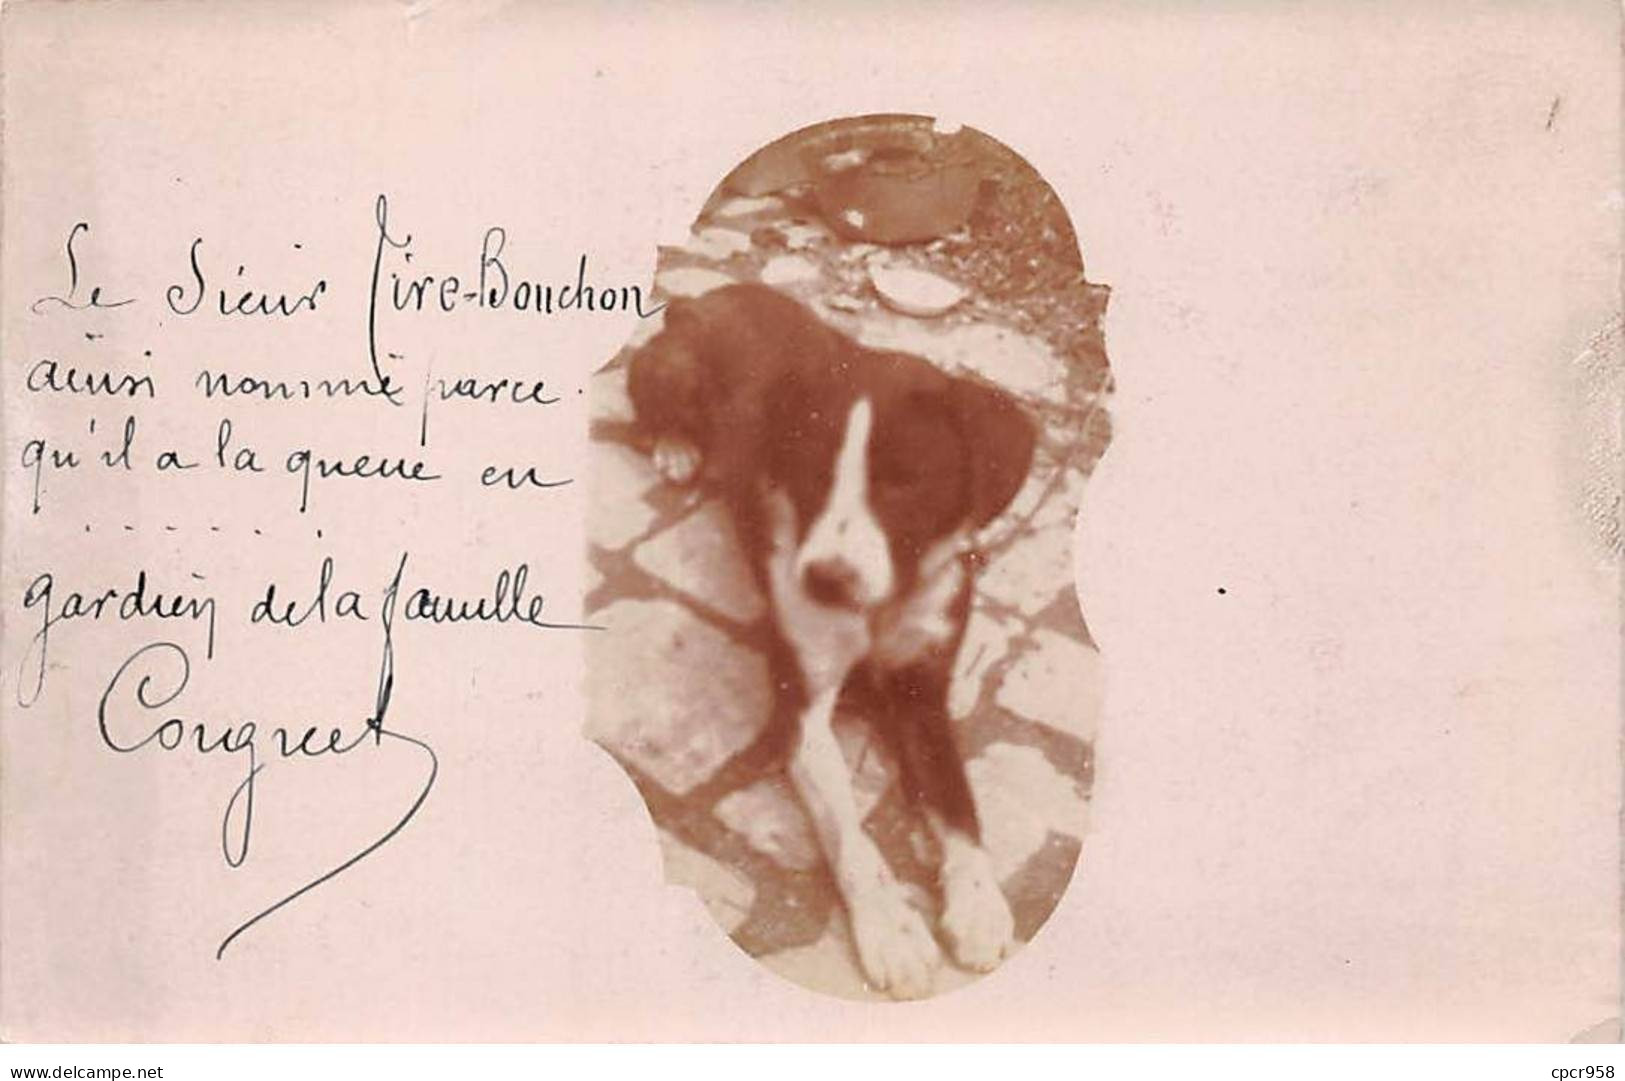 Le Sieur Tire-Bouchon
ainsi nommé parce
qu'il a la queue en
. . . . . . .
gardien de la famille
Cougnet
www.delcampe.net
cpcr958